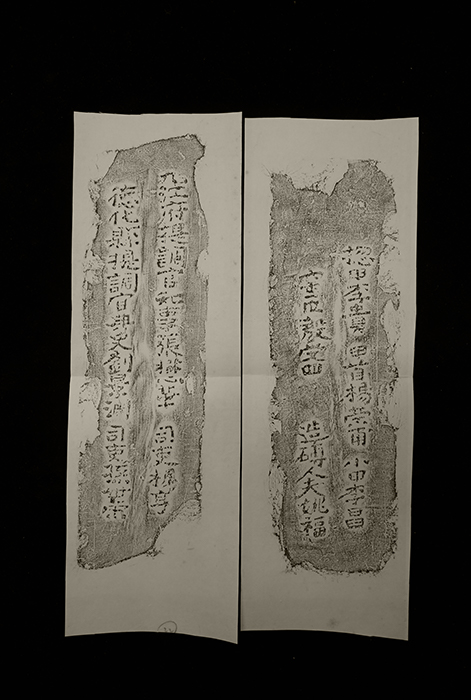 九江府提調官知事張 司吏楊亨
德化縣提調官典史劉景淵 司吏孫
總甲李 甲首楊榮甫 小甲李昌
窰匠殷 造磚人夫姚福